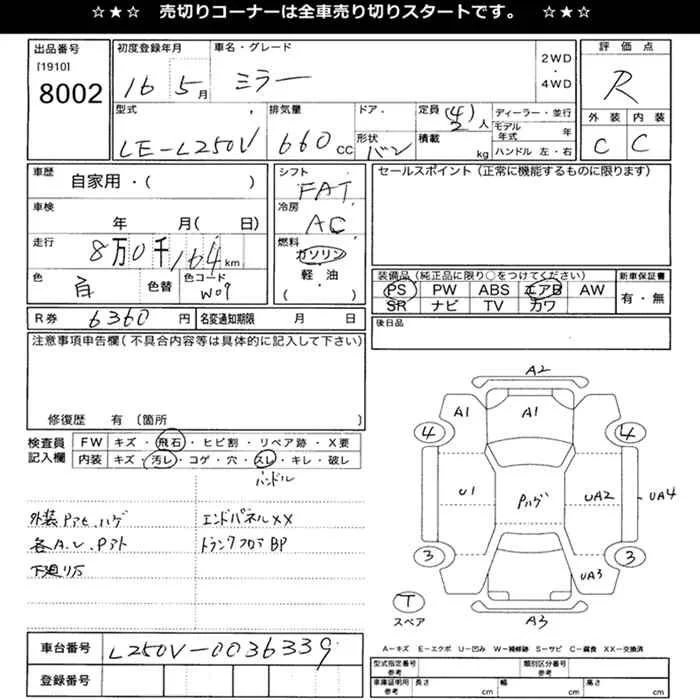 ☆★☆ 売切りコーナーは全車売り切りスタートです。 ☆★☆
出品番号
[1910]
8002
初度登録年月
16 5月
車名・グレード
ミラー
2WD
・
4WD
評価点
R
外装 内装
C C
型式
LE-L250V
排気量
660 CC
ドア・
形状
バン
定員
(4)
2 人
積載
kg
ディーラー・並行
モデル年式 年
ハンドル 左・右
車歴
自家用・( )
車検
年 月( 日)
走行
8万0千164km
色
白
色替
色コード
W09
シフト
FAT
冷房
AC
燃料
ガソリン
軽・油
( )
セールスポイント(正常に機能するものに限ります)
装備品(純正品に限り○をつけてください)
PS PW ABS エアB AW
SR ナビ TV カワ
新車保証書
有・無
R券 6360円
名変通知期限 月 日
後日品
注意事項申告欄(不具合内容等は具体的に記入して下さい)
修復歴 有 〔箇所 〕
検査員
記入欄
FW キズ・飛石・ヒビ割・リペア跡・X要
内装 キズ・汚レ・コゲ・穴・スレ・キレ・破レ
ハンドル
外装Pアセ、ハゲ
各A.U.Pアト
下廻りサ
エンドパネルXX
トランクフロアBP
A2
A1 A1
4 4
U1 Pハゲ UA2 UA4
3 3
UA3
T
スペア
A3
車台番号 L250V-0036339
登録番号
A−キズ E−エクボ U−凹み W−補修跡 S−サビ C−腐食 XX−交換済
型式指定番号
参考
類別区分番号
参考
車庫証明用
参考
長さ cm 幅 cm 高さ cm